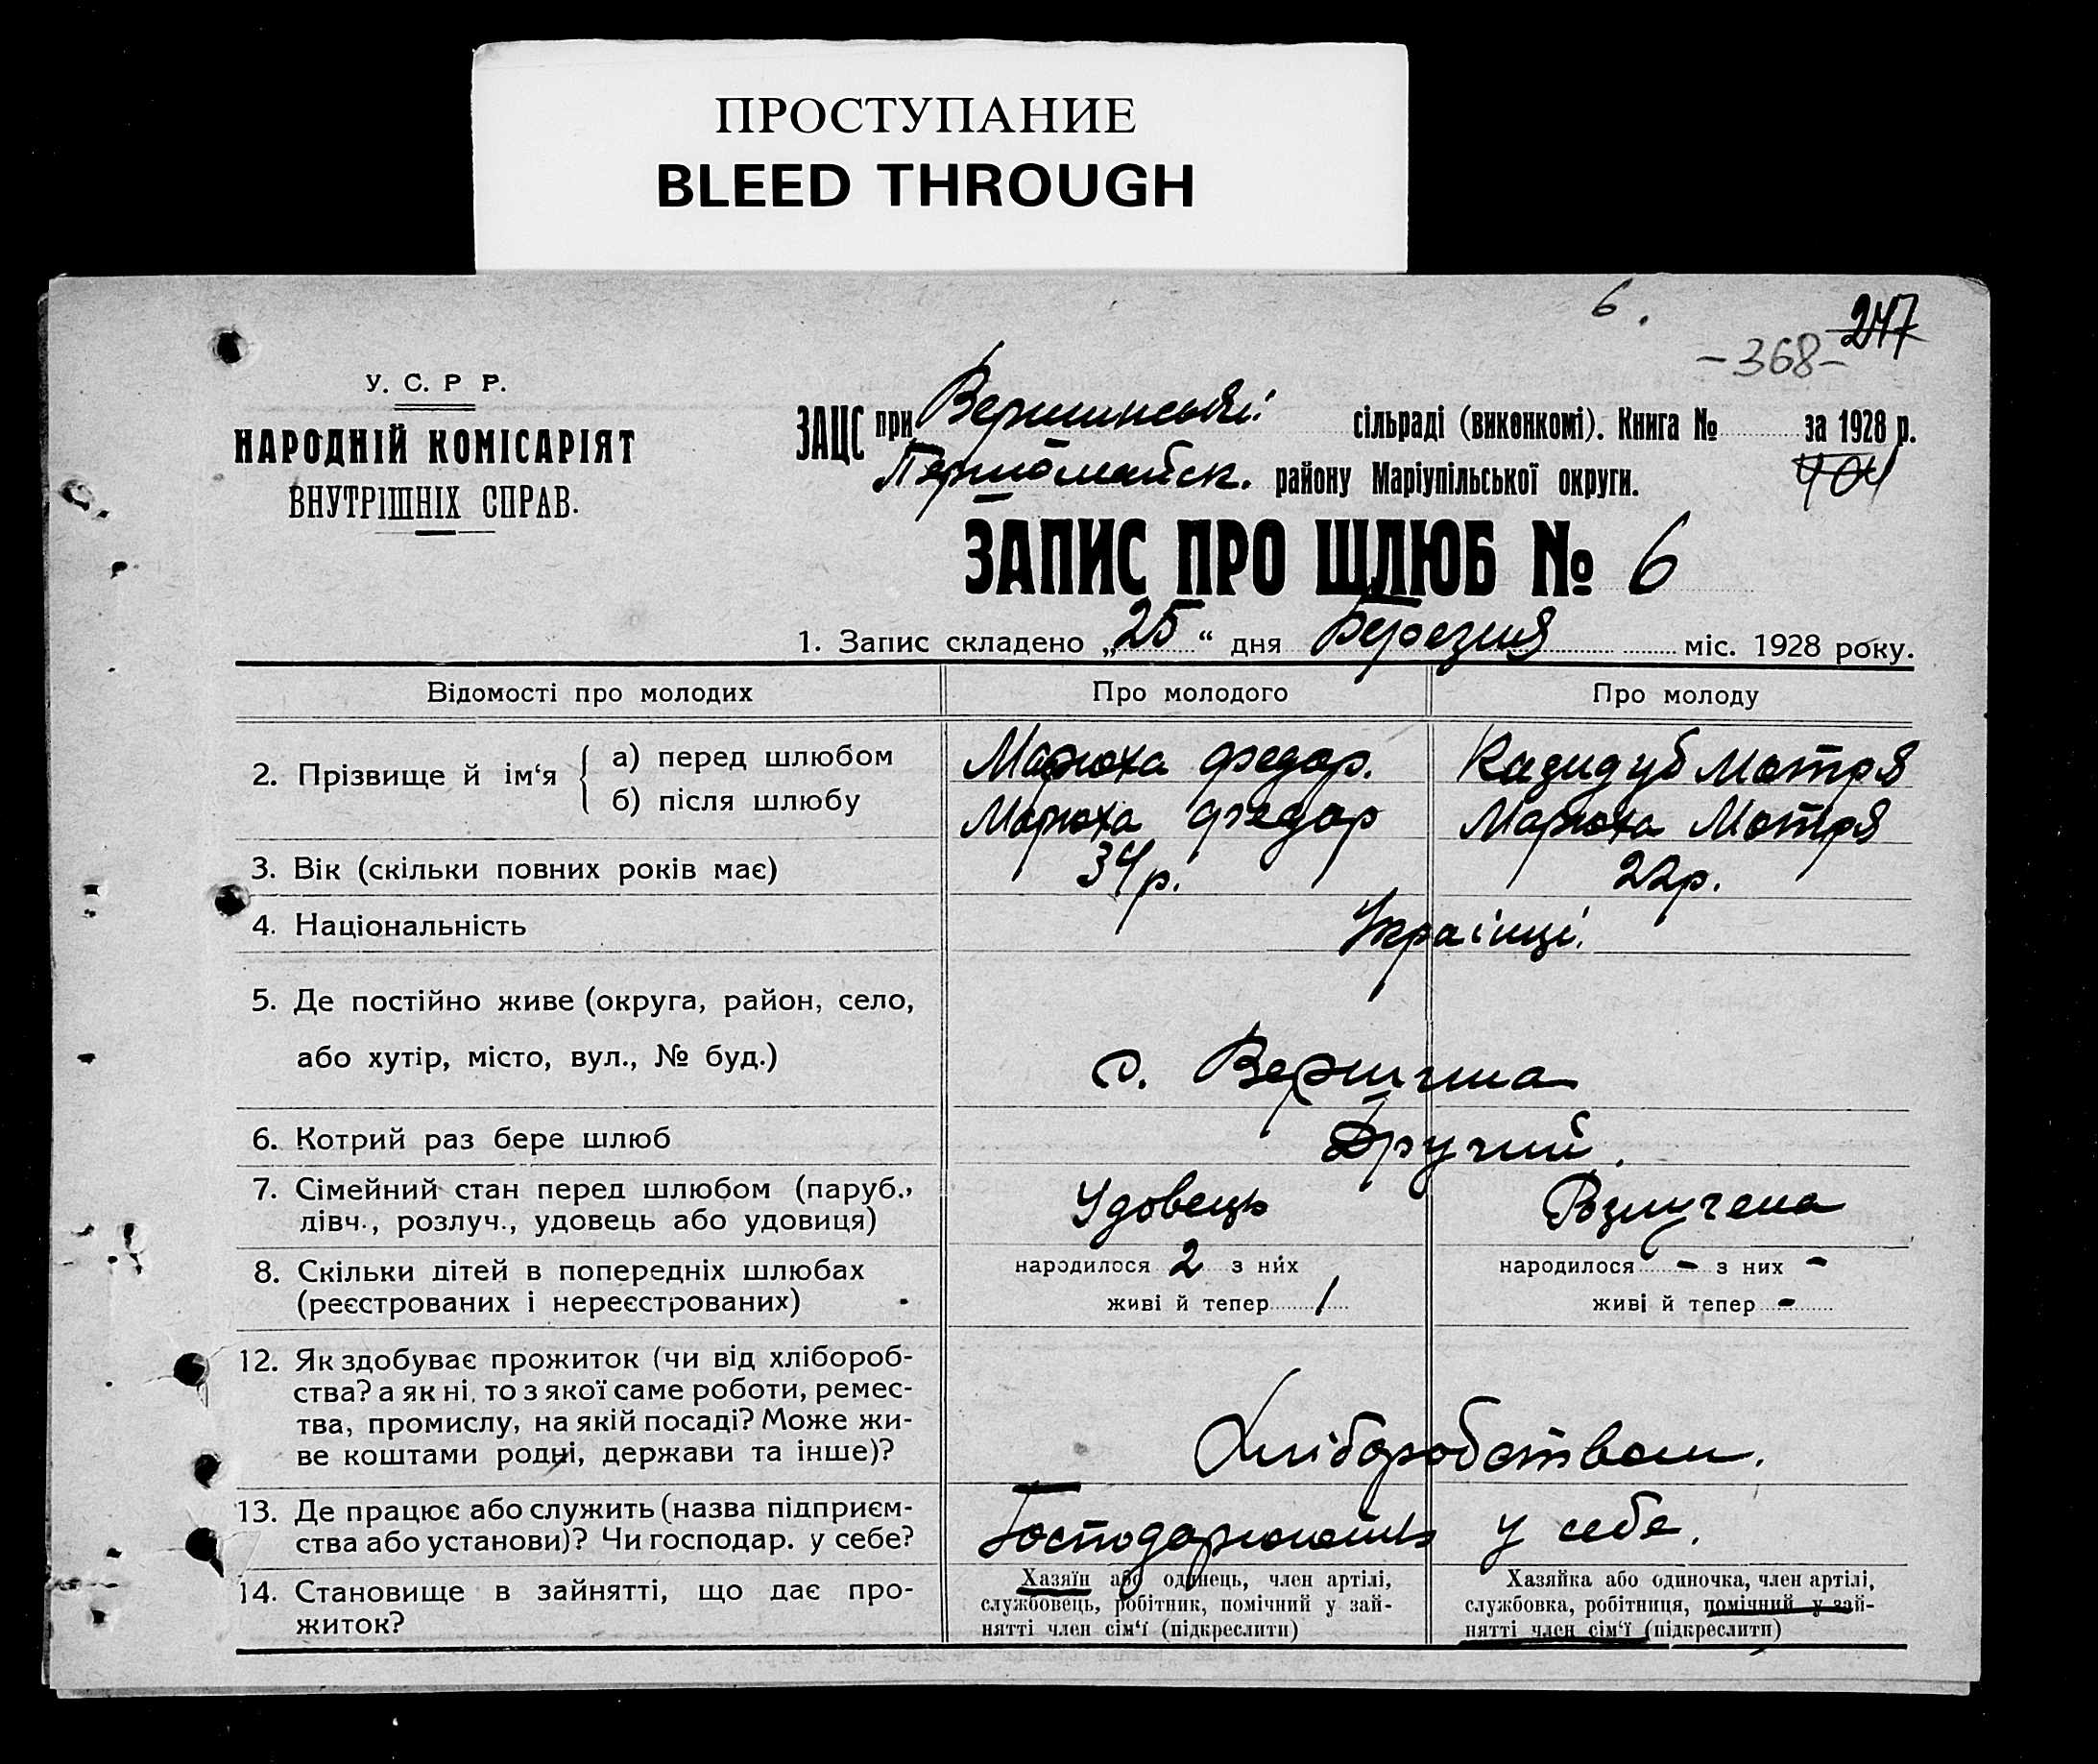 ПРОСТУПАНИЕ
BLEED THROUGH
6.
247
-368-
У. С. Р Р.
НАРОДНІЙ КОМІСАРІЯТ
ВНУТРІШНІХ СПРАВ.
ЗАЦС при Вершинській сільраді (виконкомі). Книга № за 1928 р.
Першомайск. району Маріупільської округи.
404
ЗАПИС ПРО ШЛЮБ № 6
1. Запис складено „25“ дня Березня міс. 1928 року.
Відомості про молодих Про молодого Про молоду
2. Прізвище й ім‘я
а) перед шлюбом Марюха Федор. Кадидуб Мотря
б) після шлюбу Марюха Федор Марюха Мотря
3. Вік (скільки повних років має) 34 р. 22 р.
4. Національність Українці.
5. Де постійно живе (округа, район, село,
або хутір, місто, вул., № буд.) с. Вершина
6. Котрий раз бере шлюб Другий.
7. Сімейний стан перед шлюбом (паруб.,
дівч., розлуч., удовець або удовиця) Удовець Розлучена
8. Скільки дітей в попередніх шлюбах народилося 2 з них народилося - з них -
(реєстрованих і нереєстрованих) живі й тепер 1 живі й тепер -
12. Як здобуває прожиток (чи від хлібороб-
ства? а як ні, то з якої саме роботи, ремес-
тва, промислу, на якій посаді? Може жи-
ве коштами родні, держави та інше)? Хліборобством.
13. Де працює або служить (назва підприєм-
ства або установи)? Чи господар. у себе? Господарюють у себе.
14. Становище в зайнятті, що дає про-
житок?
Хазяїн або одинець, член артілі,
службовець, робітник, помічний у зай-
нятті член сім‘ї (підкреслити)
Хазяйка або одиночка, член артілі,
службовка, робітниця, помічний у зай-
нятті член сім‘ї (підкреслити)